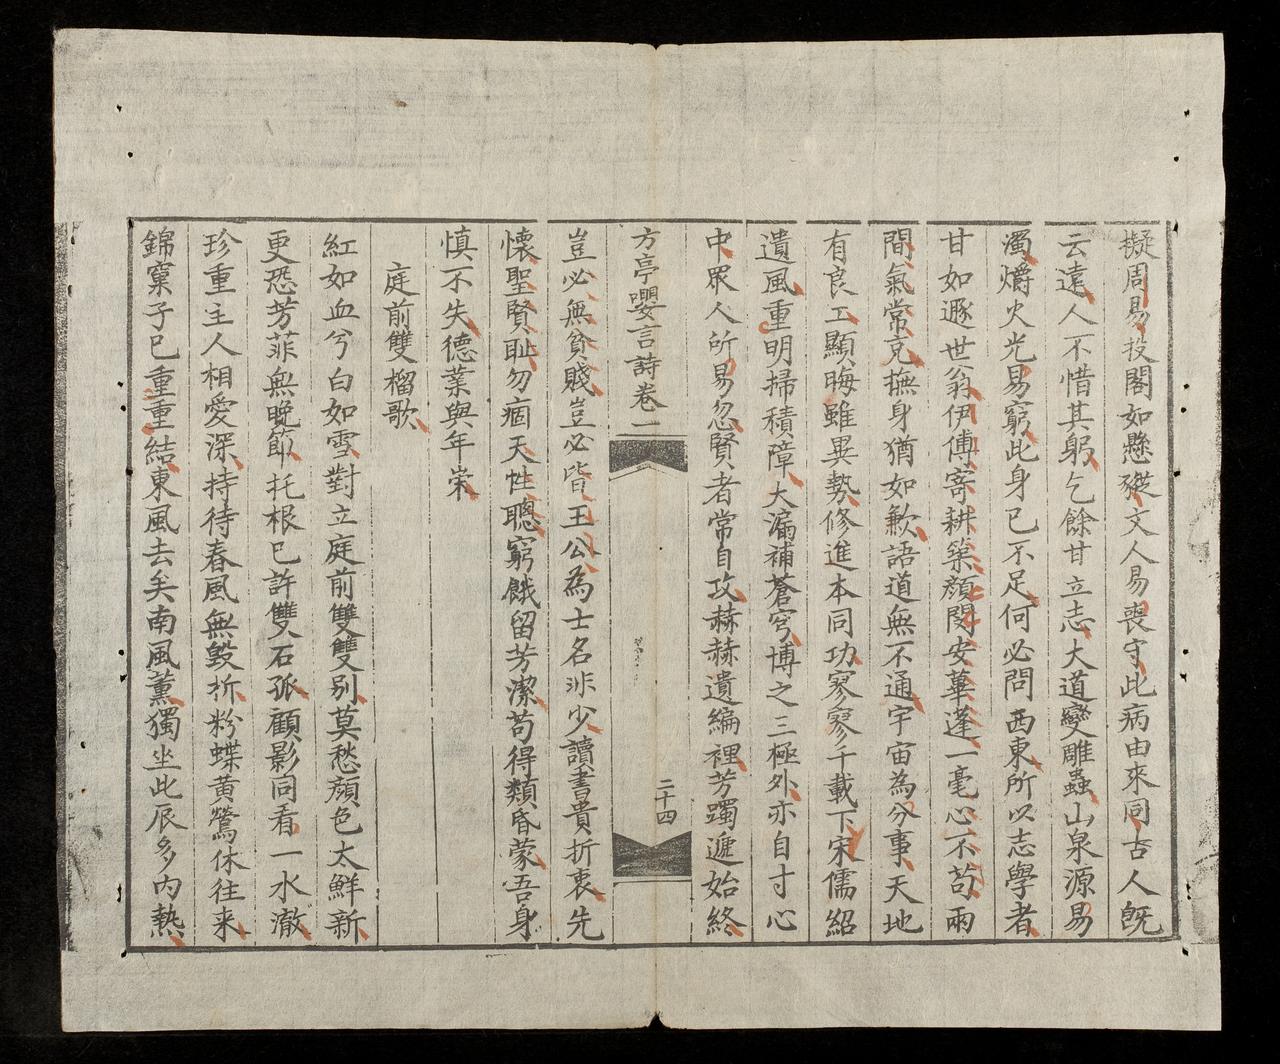 擬周易投閣如懸磫文人易喪守此病由來同古人旣
云遠人不惜其躬乞餘甘立志大道變雕蟲山泉源易
濁爝火光易窮此身已不足何必問西東所以志學者
甘如遯世翁伊傅寄耕築顏閔安蓽蓬一毫心不苟兩
間氣常充撫身猶如歉語道無不通宇宙為分事天地
有良工顯晦雖異勢修進本同功寥寥千載下宋儒紹
遺風重明掃積障大漏補蒼穹博之三極外亦自寸心
中眾人所易忽賢者常自攻赫赫遺編裡芳躅遞始終
方亭嚶言詩卷一
二十四
豈必無貧賤豈必皆王公為士名非少讀書貴折衷先
懷聖賢耻勿痼天性聰窮餓留芳潔苟得類昏蒙吾身
慎不失德業與年崇
庭前雙榴歌
紅如血兮白如雪對立庭前雙雙別莫愁顏色太鮮新
更恐芳菲無晚節托根已許雙石孤顧影同看一水澈
珍重主人相愛深持待春風無毀折粉蝶黃鶯休往来
錦窠子已重重結東風去矣南風薰獨坐此辰多內熱